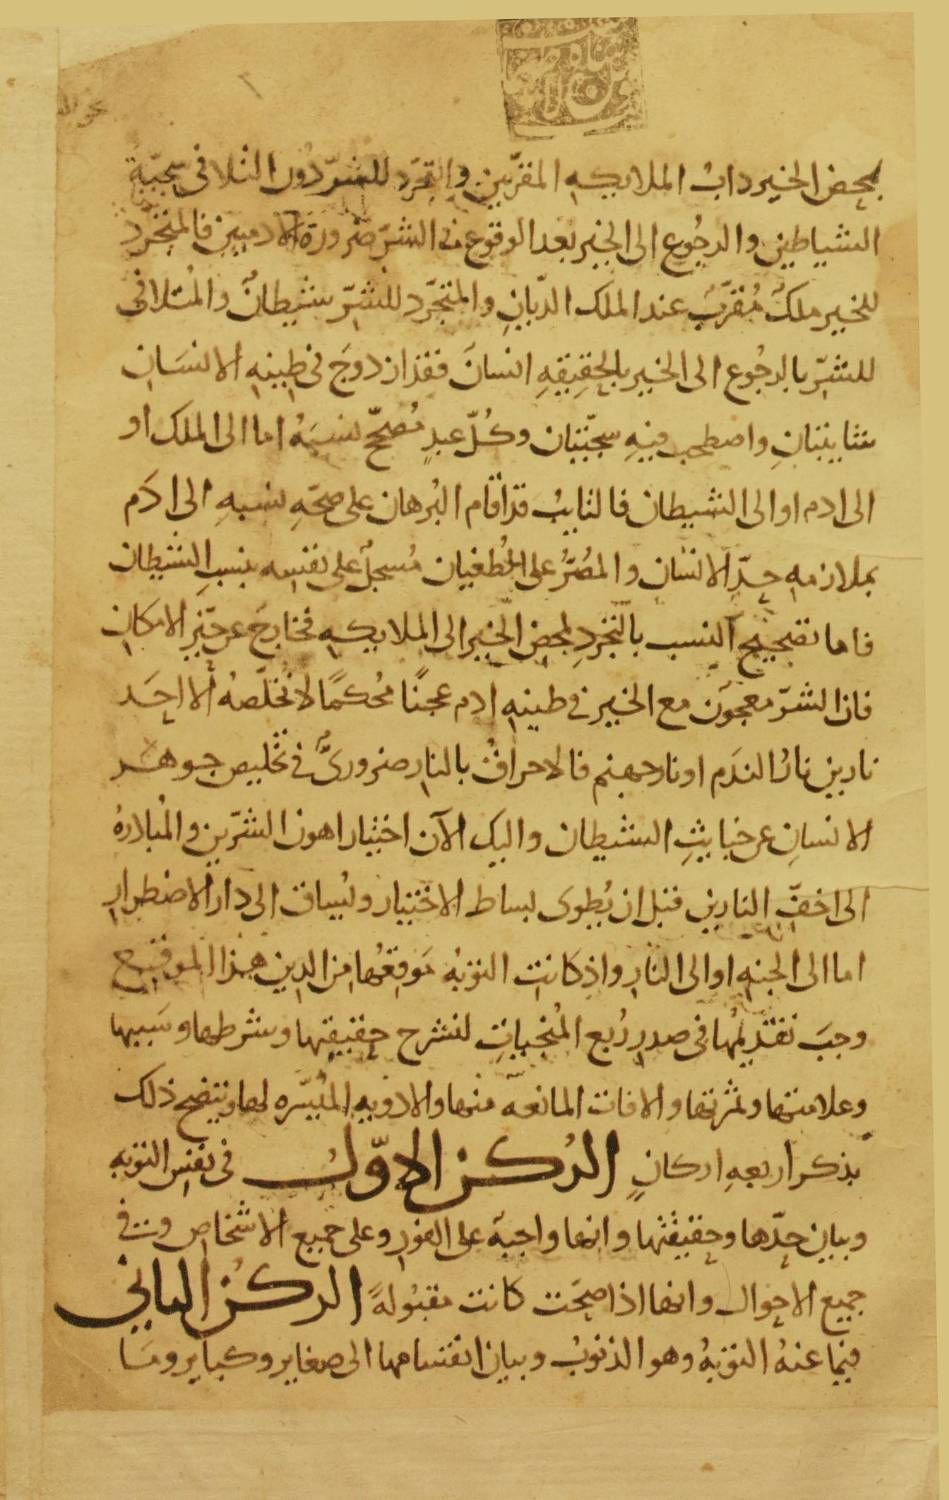 لمحض الخير داب الملايكه المقربين والتجرد للشر دون التلافى سجيّة
الشياطين والرجوع الى الخير بعد الوقوع فى الشر ضرورة الادميين فالمتجرد
للخير ملكٌ مُقرّبٌ عند الملك الدّيانِ والمتجرّد للشرّ شيطانٌ والمُتلافى
للشرّ بالرجُوع الى الخير بالحقيقهِ انسانَ فقد ازدوجَ فى طينهِ الانسَان
شايبتانِ واصطحب فيهِ سجيّتان وكُلّ عبدٍ مُصحّح نسَبَهُ اما الى الملك او
الى ادم او الى الشيطان فالتايبُ قد اقام البُرهان على صحّهِ نسبهِ الى ادَم
بملازمهِ حدّ الانسَان والمُصرّ على الطغيان مُسجلٌ على نفسه بنسبِ الشيطان
فاما تصحيح النسب بالتجردِ لمحض الخير الى الملايكهِ فخارجَ عن حيّزِ الامكان
فان الشرّ معجُون مع الخير فى طينهِ ادم عجنًا مُحكمًا لا تخلّصهُ الا احَد
نارين نارُ الندَم او نار جهنم فالاحراقُ بالنارِ ضروريٌ فى تخليص جوهَر
الانسانِ عن خبايثِ الشيطان واليك الآن اختيار اهون الشرّين والمُبادرهُ
الى اخفّ النارين قبل ان يُطوى بساط الاختيار ويُساق الى دار الاضطرارِ
اما الى الجنه او الى النارِ واذ كانت التوبهُ مَوقعُها من الدين هذا الموقع
وجبَ تقديمُها فى صدرِ رُبع المُنجياتِ لنشرح حقيقتها وشرطها وسَببها
وعلامتها وثمرتها والافات المانعه منها والادويه المُيسّره لها ويتضح ذلك
بذكر اربعهِ اركانٍ الرُكن الاوّلُ فى نفس التوبه
وبيان حدّها وحقيقتها وانها واجبة على الفور وعلى جميع الاشخاص وفى
جميع الاحوال وانها اذا صحّت كانت مقبُولةً الركن الثانى
فيما عنهُ التوبهُ وهو الذنوبُ وبيان انقسامها الى صغاير وكباير ومَا